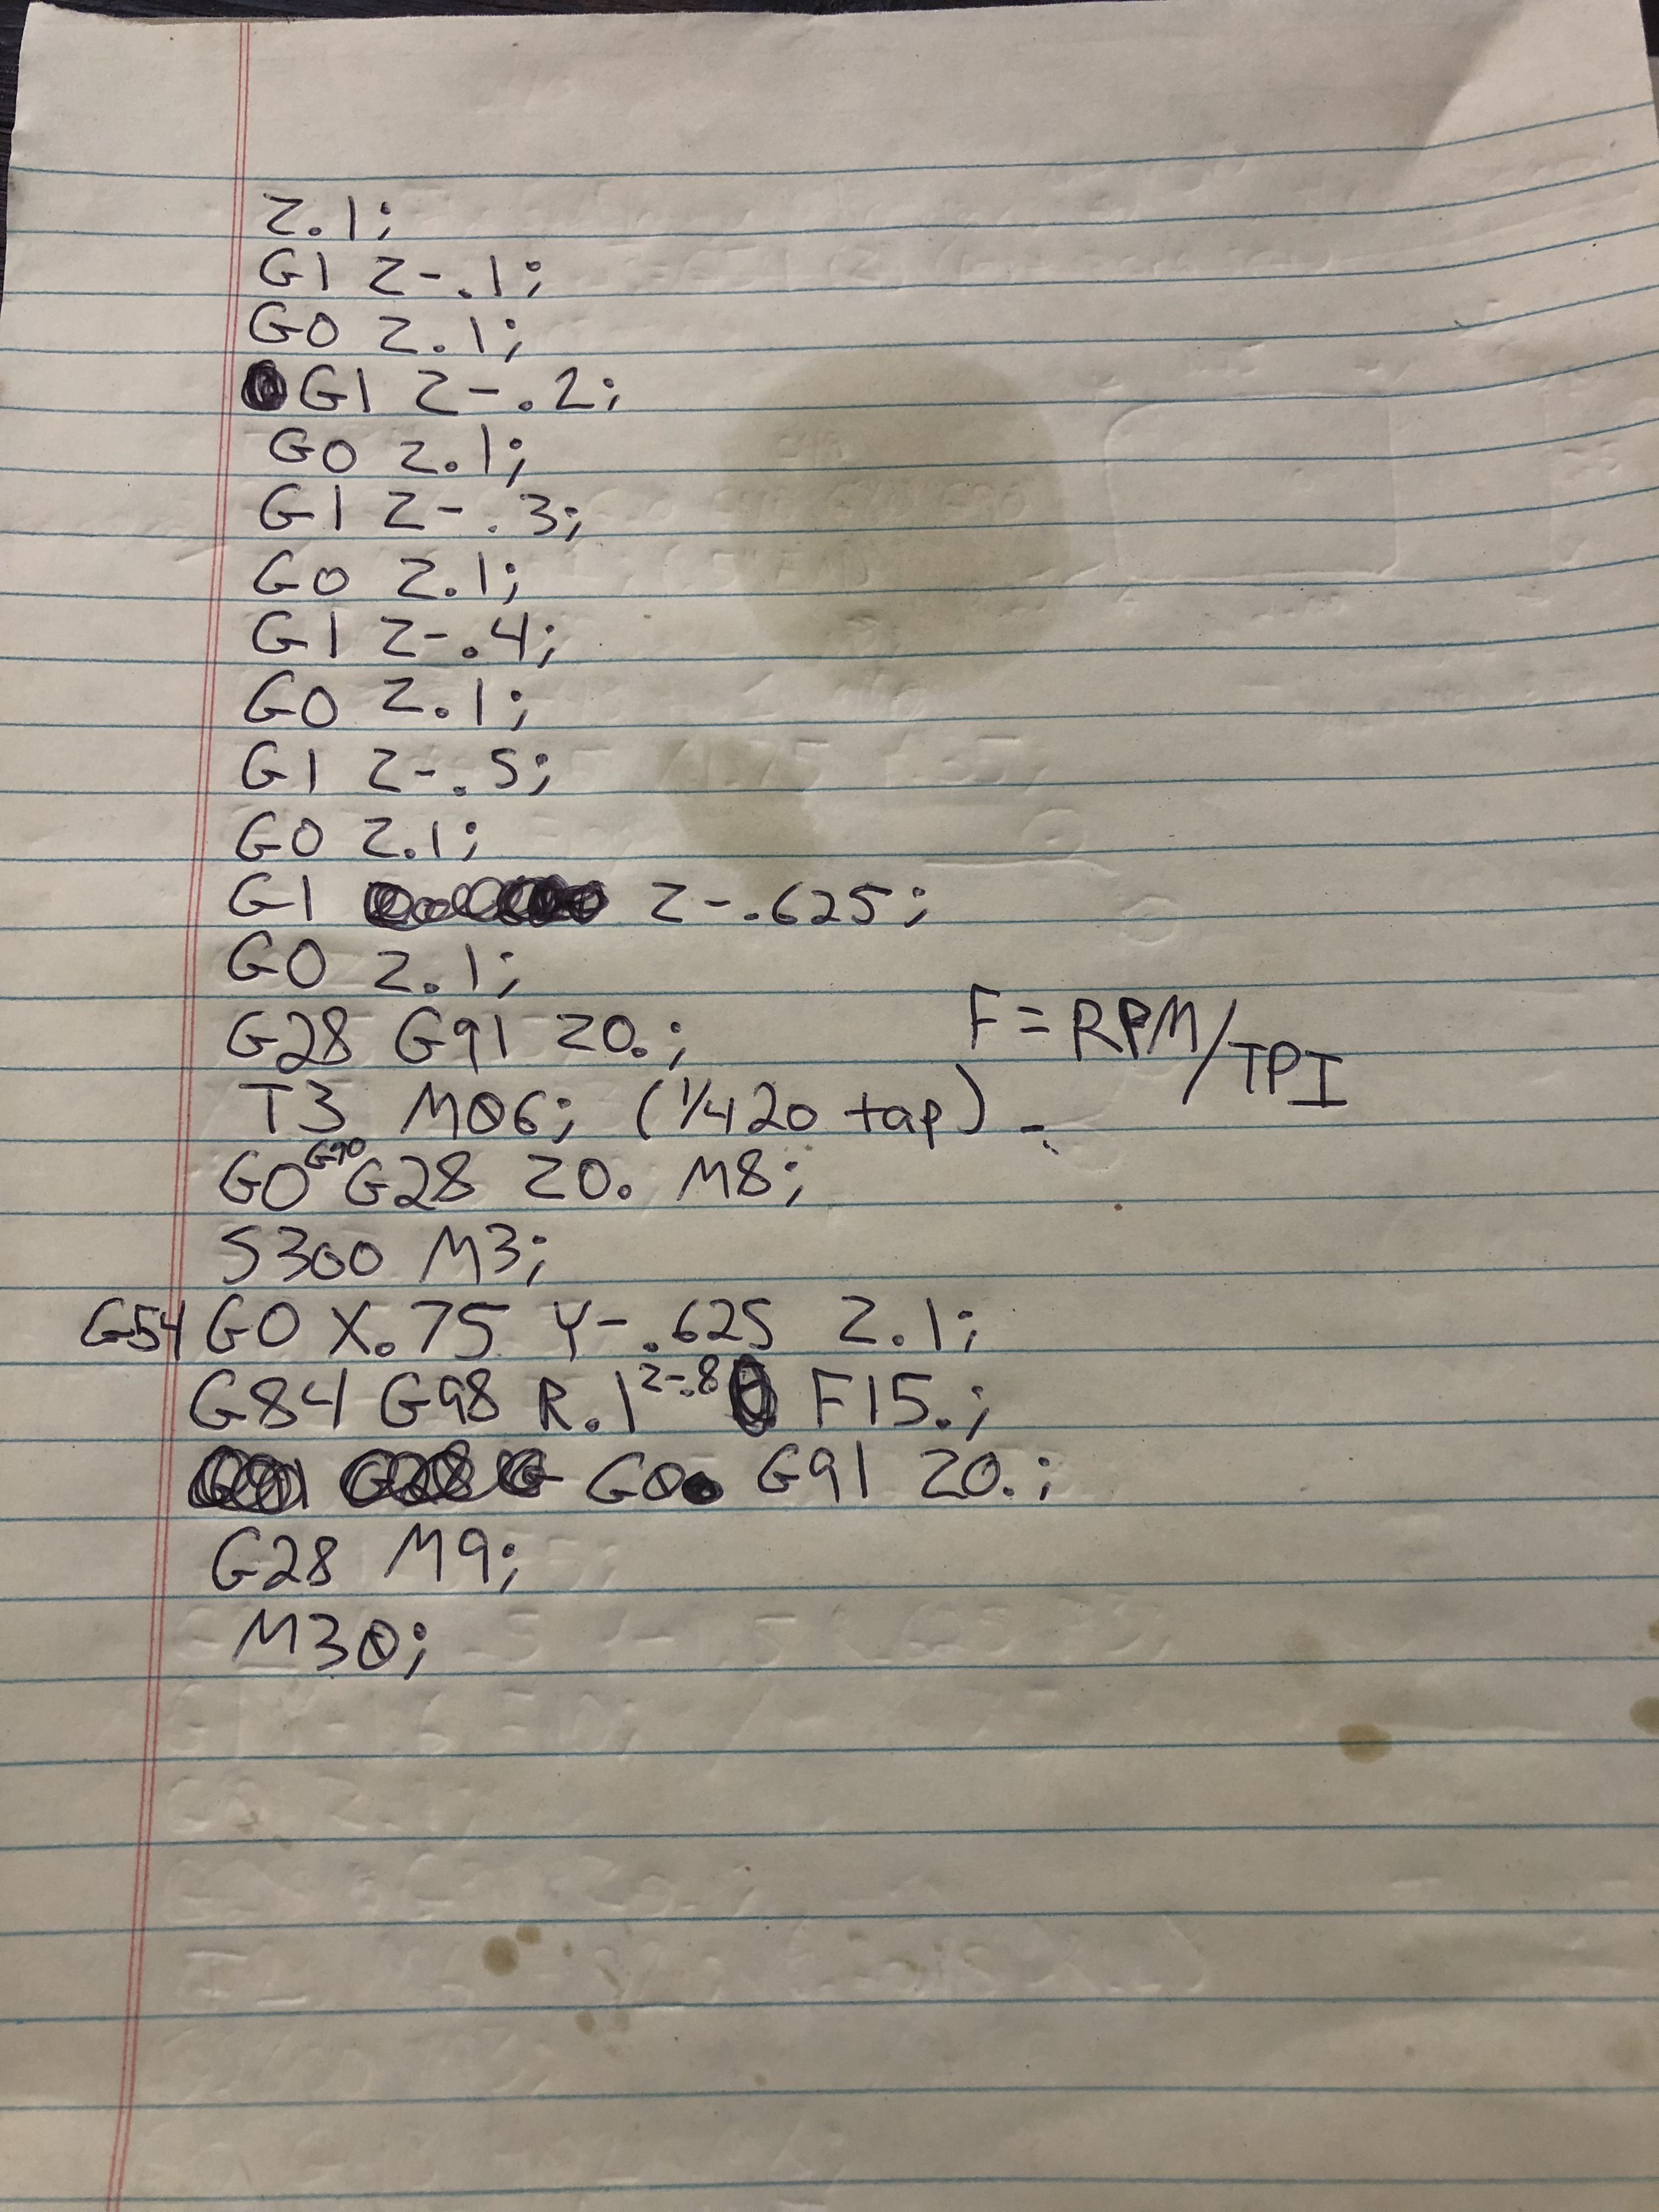 Z.1;
G1 Z-.1;
G0 Z.1;
G1 Z-.2;
G0 Z.1;
G1 Z-.3;
G0 Z.1;
G1 Z-.4;
G0 Z.1;
G1 Z-.5;
G0 Z.1;
G1 Z-.625;
G0 Z.1;
G28 G91 Z0.;
F=RPM/TPI
T3 M06; (1/4 20 tap) -
G0 G90 G28 Z0. M8;
S300 M3;
G54 G0 X.75 Y-.625 Z.1;
G84 G98 R.1 Z-.8 F15.;
G0 G91 Z0.;
G28 M9;
M30;